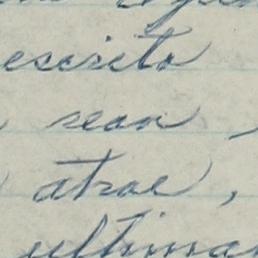 escrito
sean
atrae,
ultima